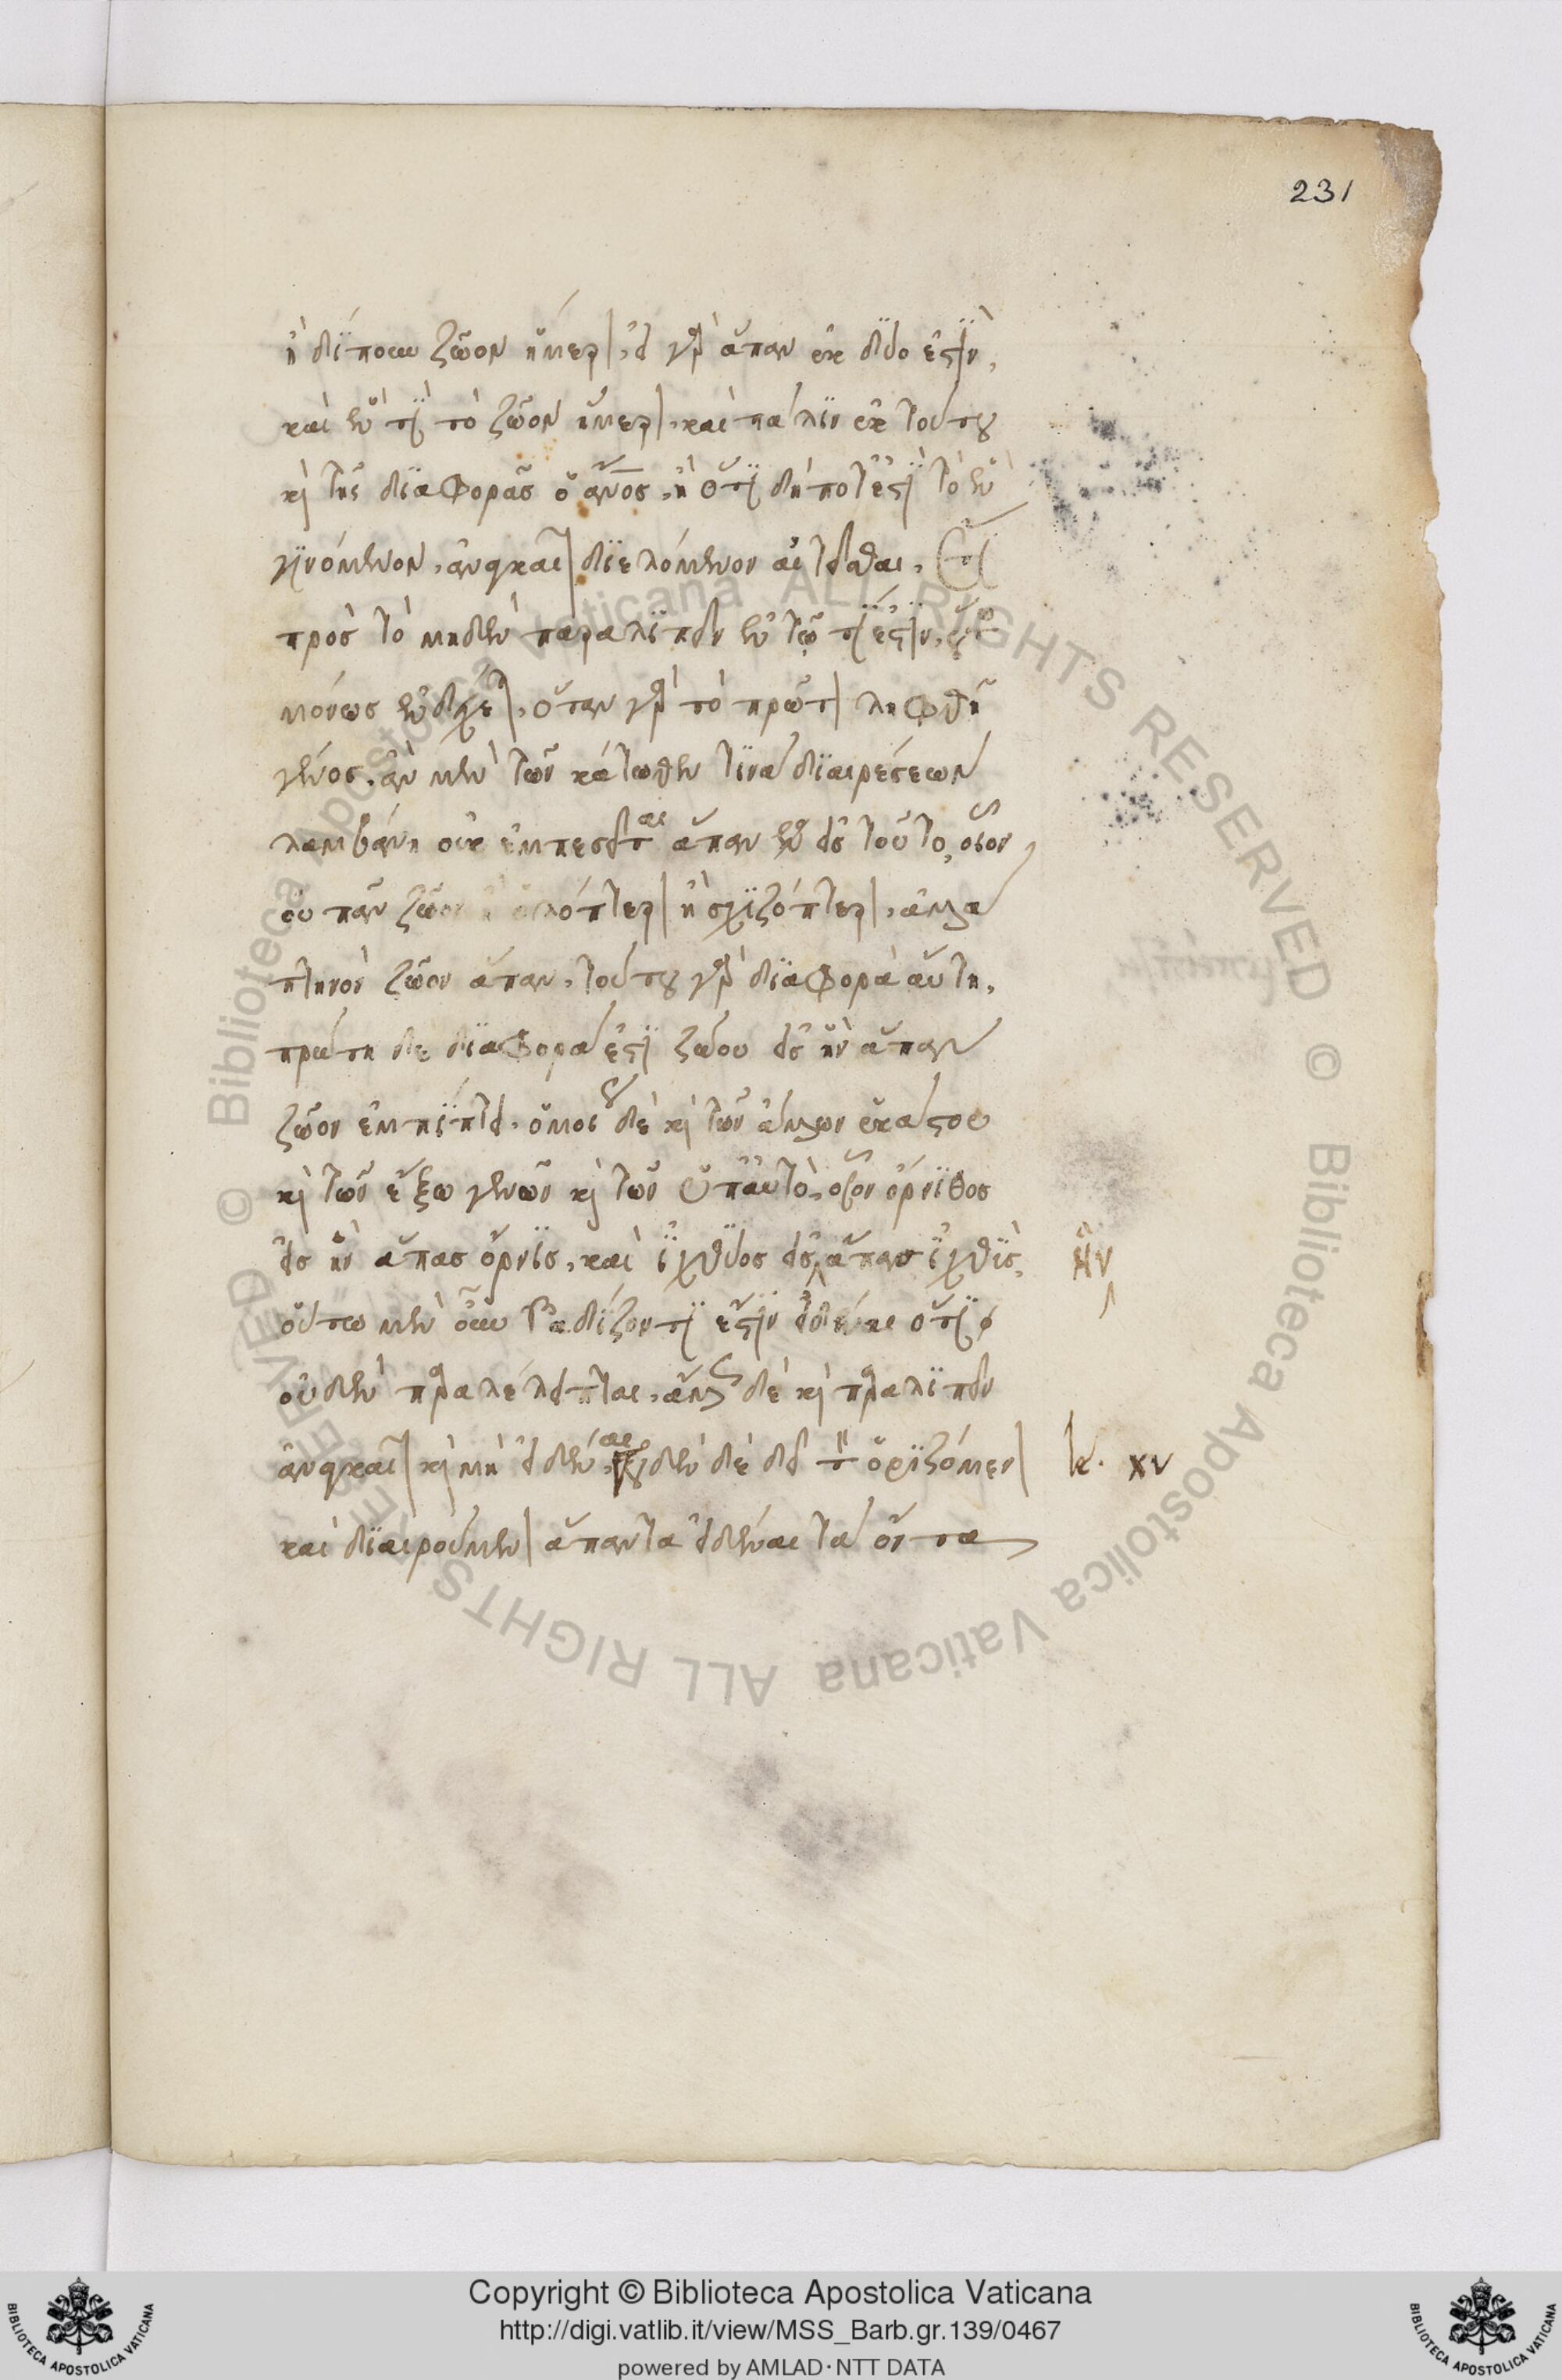 231
ἢ δίπουν ζῶον ἥμερον· εἰ γὰρ ἅπαν ἐκ δύο ἐστὶν,
καὶ ἕν τι τὸ ζῶον ἥμερον, καὶ πάλιν ἐκ τούτου
καὶ τῆς διαφορᾶς ὁ ἄνος, ἢ ὅτι δήποτ' ἐστὶ τὸ ἓν
γινόμενον, ἀναγκαῖον διελόμενον αἰτεῖσθαι, ἔτι
πρὸς τὸ μηδὲν παραλιπεῖν ἐν τῷ τί ἐστιν, οὕτω
μόνως ἐνδέχεται, ὅταν γὰρ τὸ πρῶτον ληφθῇ
γένος, ἂν μὲν τῶν κάτωθεν τινὰ διαιρέσεων
λαμβάνῃ οὐκ ἐμπεσεῖται ἅπαν εἰς τοῦτο, οἷον
οὐ πᾶν ζῶον ἢ ὁλόπτερον ἢ σχιζόπτερον, ἀλλὰ
πτηνὸν ζῶον ἅπαν, τούτου γὰρ διαφορὰ αὕτη,
πρώτη δὲ διαφορά ἐστι ζώου εἰς ἣν ἅπαν
ζῶον ἐμπίπτει, ὁμοίως δὲ καὶ τῶν ἄλλων ἑκάστου
καὶ τῶν ἔξω γενῶν καὶ τῶν ὑπ' αὐτὸ, οἷον ὄρνιθος
εἰς ἣν ἅπας ὄρνις, καὶ ἰχθύος εἰς ἅπας ἰχθύς, ἣν
οὕτω μὲν οὖν βαδίζοντι ἔστιν εἰδέναι ὅτι
οὐδὲν παραλέλειπται, ἄλλως δὲ καὶ παραλιπεῖν
ἀναγκαῖον καὶ μὴ εἰδέναι, οὐδὲν δὲ δεῖ τὸν ὁριζόμενον k. xv
καὶ διαιρούμενον ἅπαντα εἰδέναι τὰ ὄντα
Copyright © Biblioteca Apostolica Vaticana
http://digi.vatlib.it/view/MSS_Barb.gr.139/0467
powered by AMLAD·NTT DATA